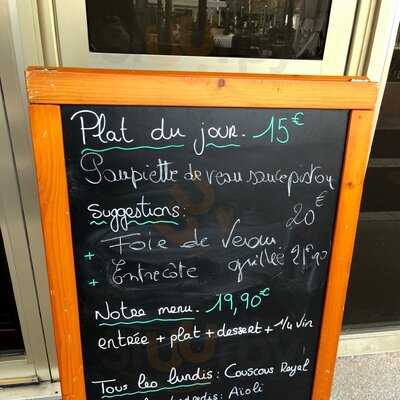 Plat du jour. 15€
Paupiette de veau sauce piston
Suggestions:
Foie de veau 20€
+ Entrecôte grillée 21€90
Notre menu. 19,90€
entrée + plat + dessert + 1/4 vin
Tous les lundis: Couscous Royal
Aïoli